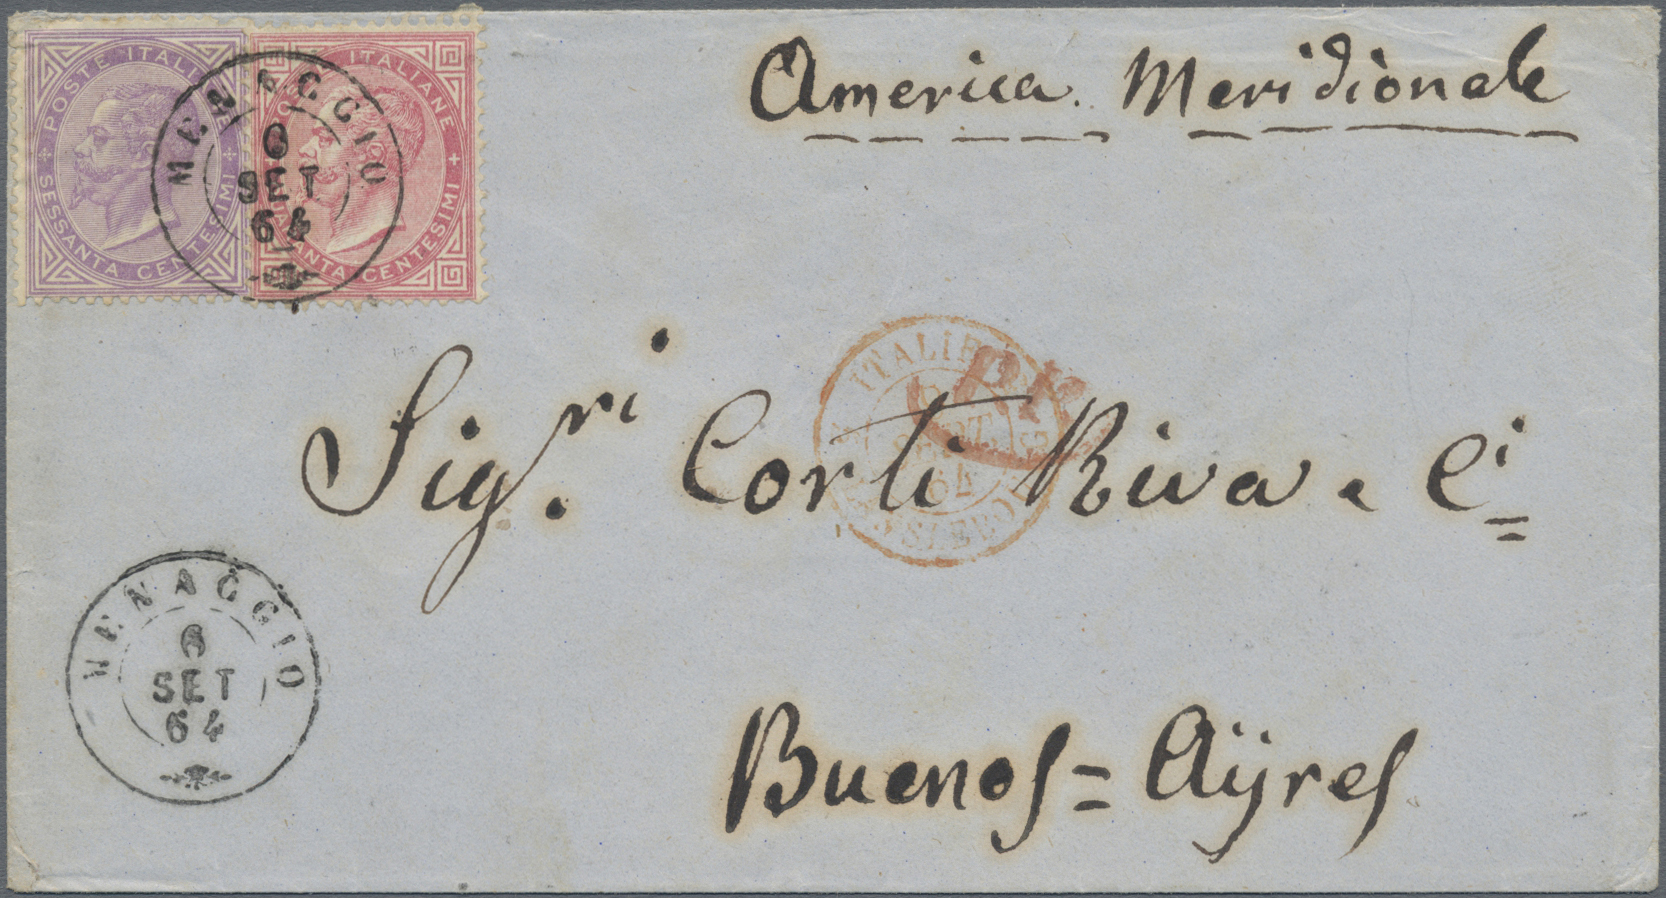 America Meridionale
POSTE ITALIANE
SESSANTA CENTESIMI
ITALIANE
CENTESIMI
MENAGGIO
6
SET
64
Sig.ri Corti Riva e Ci
ITALIE
SEPT.
64
MENAGGIO
6
SET
64
Buenos = Aÿres